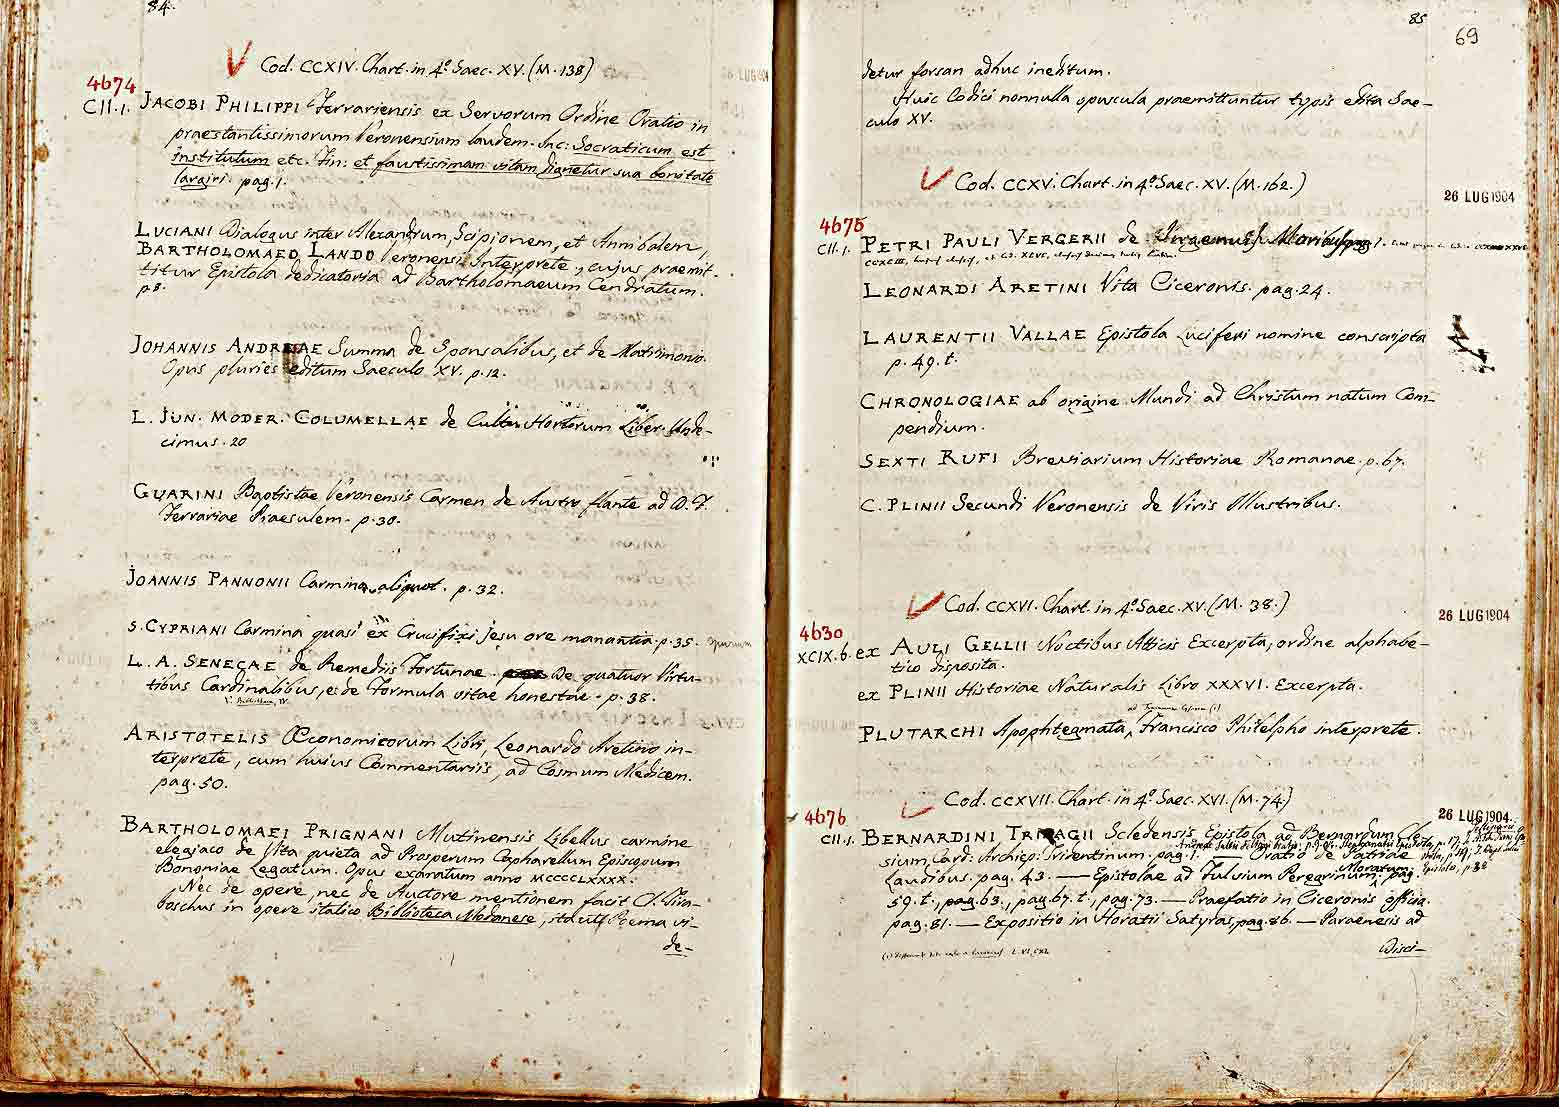 84.
Cod. CCXIV. Chart. in 4º Saec. XV. (M. 138)
4674
CII. 1.
JACOBI PHILIPPI Ferrariensis ex Servorum Ordine Oratio in
praestantissimorum Veronensium laudem. Inc: Socraticum est
institutum etc. Fin: et faustissimam vitam dignetur sua bonitate
largiri. pag. 1.
LUCIANI Dialogus inter Alexandrum, Scipionem, et Annibalem,
BARTHOLOMAEO LANDO Veronensi Interprete, cujus praemit-
titur Epistola dedicatoria ad Bartholomaeum Cendratum.
p. 8.
JOHANNIS ANDREAE Summa de Sponsalibus, et de Matrimonio.
Opus pluries editum Saeculo XV. p. 12.
L. JUN. MODER. COLUMELLAE de Cultu Hortorum Liber Unde-
cimus. 20
GUARINI Baptistae Veronensis Carmen de Austro flante ad D. F.
Ferrariae Praesulem. p. 30.
JOANNIS PANNONII Carmina aliquot. p. 32.
S. CYPRIANI Carmina quasi ex Crucifixi Jesu ore manantia p. 35.
L. A. SENECAE de Remediis Fortunae. De quatuor Virtu-
tibus Cardinalibus, et de Formula vitae honestae. p. 38.
ARISTOTELIS Œconomicorum Libri, Leonardo Aretino in-
terprete, cum huius Commentariis, ad Cosmum Medicem.
pag. 50.
BARTHOLOMAEI PRIGNANI Mutinensis Libellus carmine
elegiaco de Vita quieta ad Prosperum Capharellum Episcopum
Bononiae Legatum. Opus exaratum anno MCCCCLXXXX.
Nec de opere, nec de Auctore mentionem facit Cl. Tira-
boschus in opere italico Biblioteca Modanese, itaut Poema vi-
de-
85
69
detur forsan adhuc ineditum.
Huic Codici nonnulla opuscula praemittuntur typis edita Sae-
culo XV.
Cod. CCXV. Chart. in 4º Saec. XV. (M. 162.)
26 LUG 1904
4675
CII. 1.
PETRI PAULI VERGERII de Ingenuis Moribus pag. 1.
LEONARDI ARETINI Vita Ciceronis. pag. 24.
LAURENTII VALLAE Epistola Luciferi nomine conscripta
p. 49. t.
CHRONOLOGIAE ab origine Mundi ad Christum natum Com-
pendium.
SEXTI RUFI Breviarium Historiae Romanae. p. 67.
C. PLINII Secundi Veronensis de Viris Illustribus.
Cod. CCXVI. Chart. in 4º Saec. XV. (M. 38.)
26 LUG 1904
4630
XCIX. 6.
ex AULI GELLII Noctibus Atticis Excerpta, ordine alphabe-
tico disposita.
ex PLINII Historiae Naturalis Libro XXXVI. Excerpta.
PLUTARCHI Apophtegmata, Francisco Philelpho interprete.
Cod. CCXVII. Chart. in 4º Saec. XVI. (M. 74.)
26 LUG 1904
4676
CII. 1.
BERNARDINI TRINAGII Scledensis Epistola ad Bernardum Cle-
sium, Card: Archiep: Tridentinum. pag. 1. — Oratio de Patriae
Laudibus. pag. 43. — Epistolae ad Fulvium Peregrinum Moratum. pag.
59. t., pag. 63., pag. 67. t., pag. 73. — Praefatio in Ciceronis officia.
pag. 81. — Expositio in Horatii Satyras, pag. 86. — Paraenesis ad
Disci-